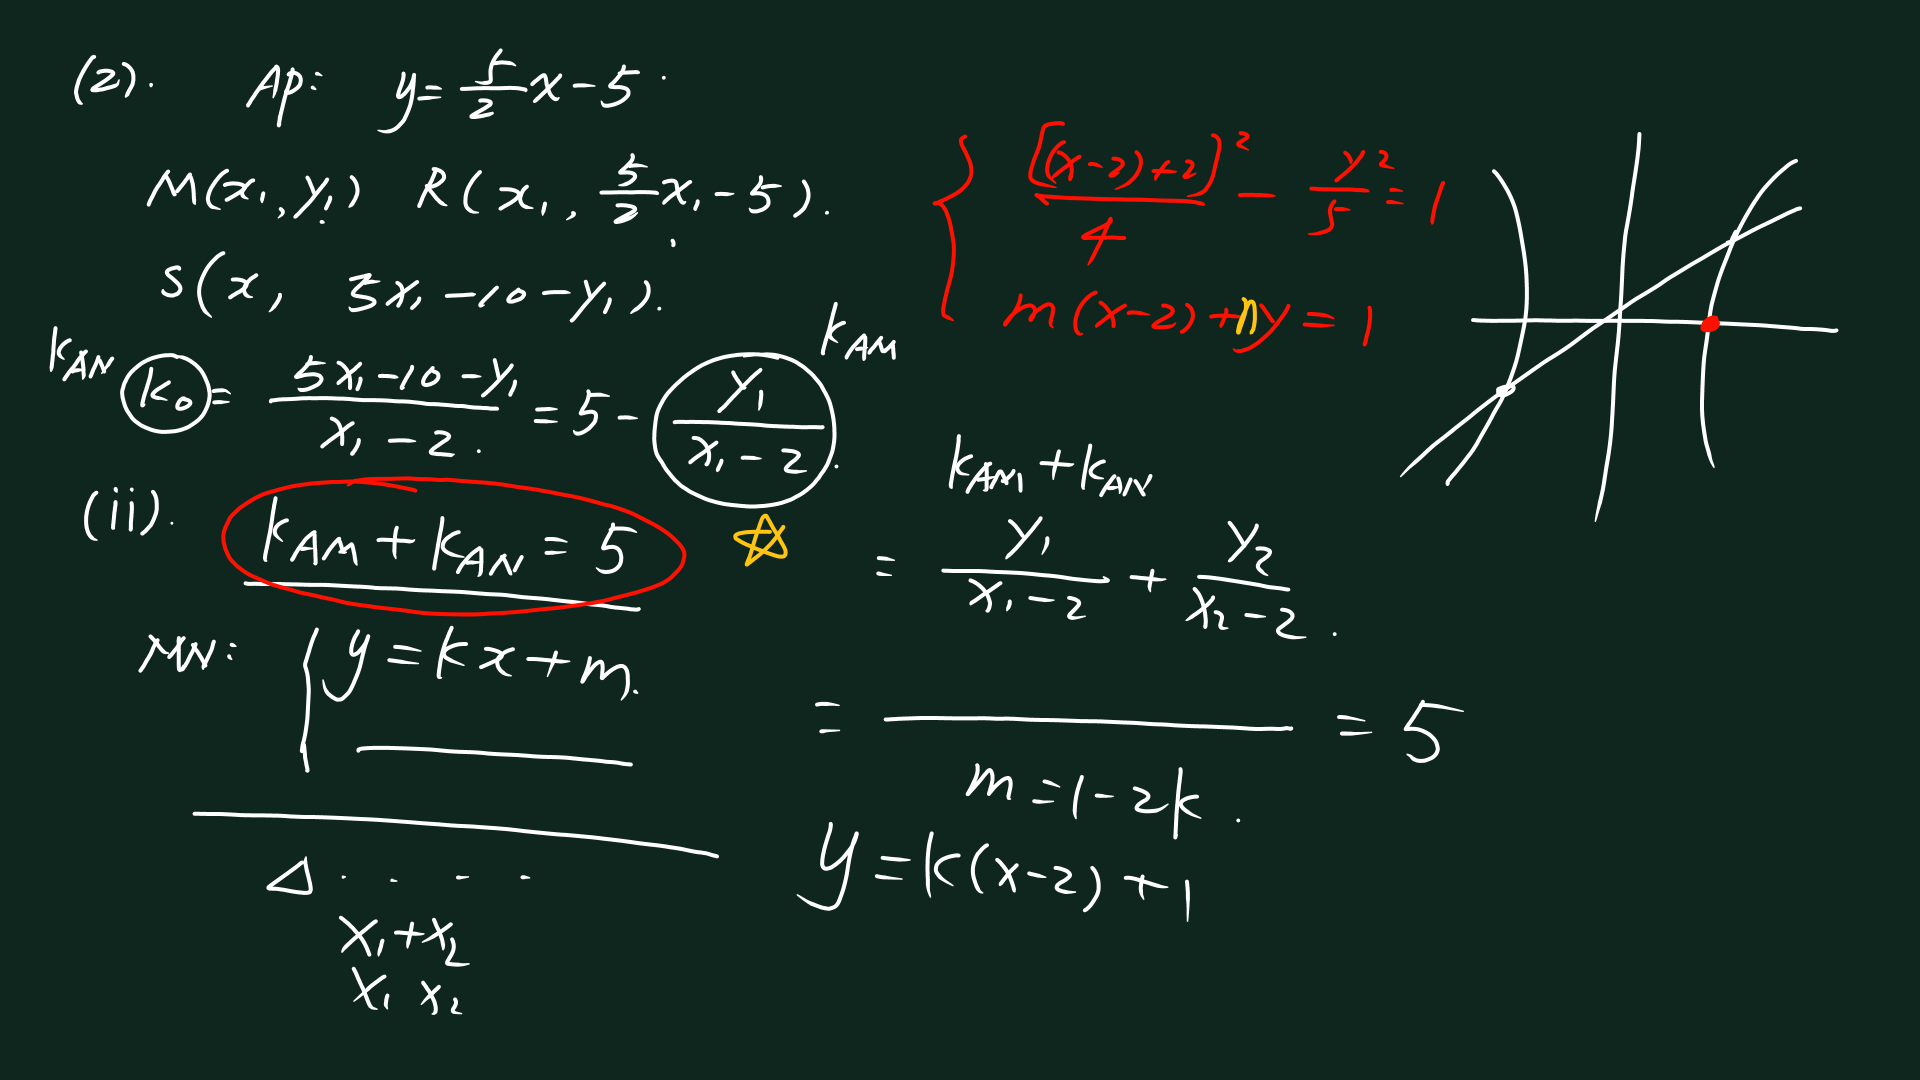 (2). AP: y=5/2x-5
M(x₁,y₁) R(x₁, 5/2x₁-5).
S(x, 5x₁-10-y₁).
k_AN k₀ = (5x₁-10-y₁)/(x₁-2) = 5 - y₁/(x₁-2). k_AM
(ii). k_AM+k_AN=5 ☆
MN: { y=kx+m.
Δ ....
x₁+x₂
x₁x₂
{ [(x-2)+2]²/4 - y²/5 = 1
m(x-2)+ny=1
k_AM+k_AN
= y₁/(x₁-2) + y₂/(x₂-2).
= ——— = 5
m=1-2k.
y=k(x-2)+1